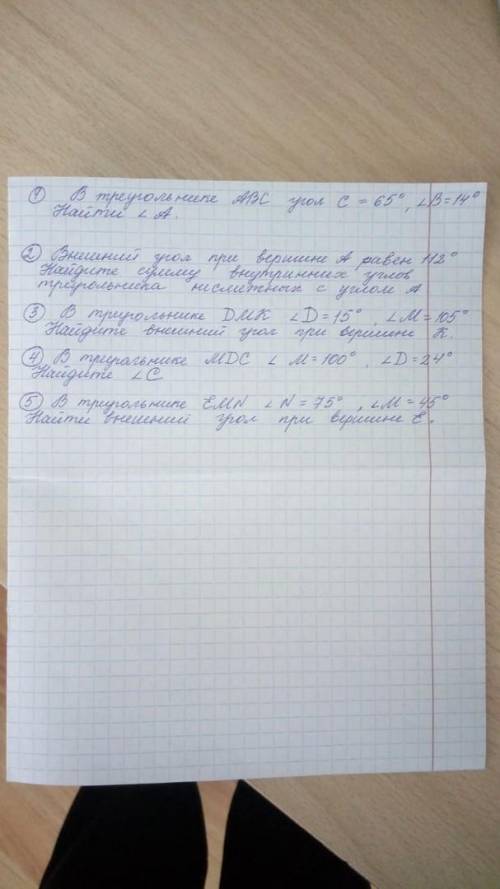 ① В треугольнике ABC угол C = 65°, ∠B = 14°
Найти ∠ A.
② Внешний угол при вершине A равен 112°
Найдите сумму внутринних углов
треугольника несмежных с углом A
③ В триугольнике DMK ∠D = 15°, ∠M = 105°
Найдите внешний угол при вершине K.
④ В триугальнике MDC ∠ M = 100°, ∠D = 24°
Найдите ∠C
⑤ В триугольнике EMN ∠ N = 75°, ∠M = 45°
Найти внешний угол при вершине E.